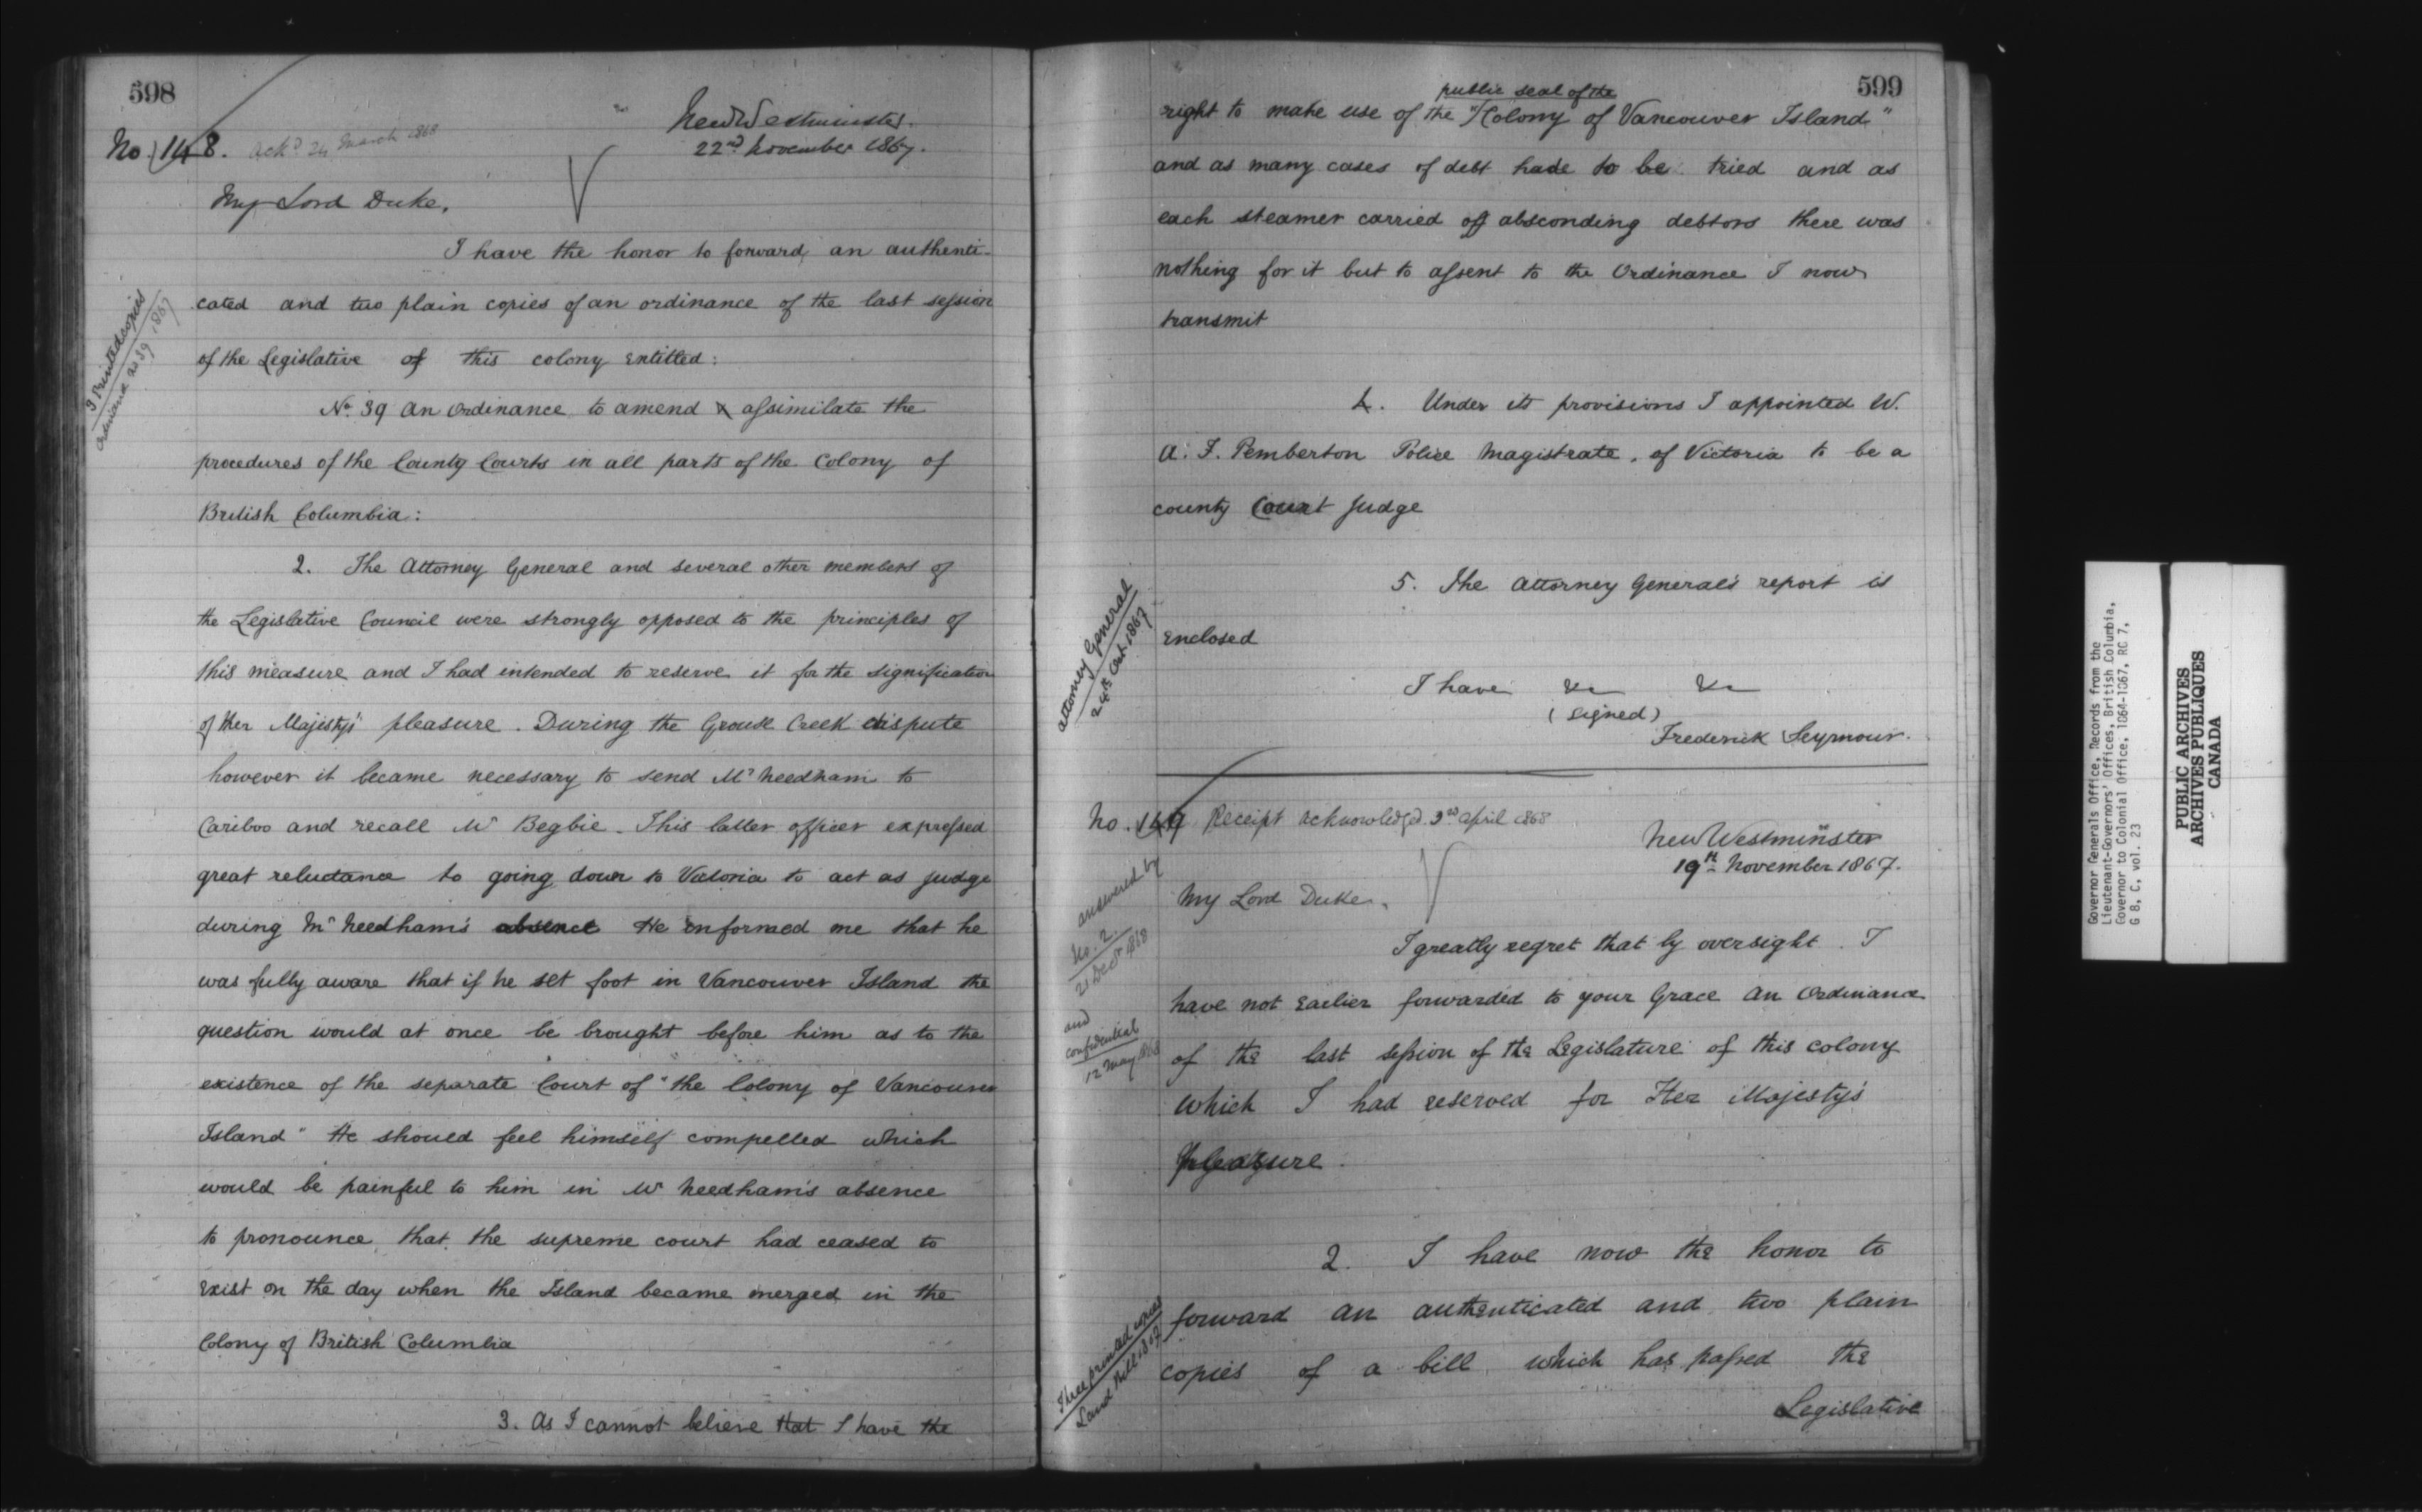 598
No. 148. Ackd 24 March 1868
New Westminster.
22nd November 1867.
My Lord Duke,
I have the honor to forward an authenti-
cated and two plain copies of an ordinance of the last session
of the Legislative of this colony entitled:
3 Printed copies
Ordinance no 39 1867
No. 39 An Ordinance to amend & assimilate the
procedures of the County Courts in all parts of the Colony of
British Columbia:
2. The Attorney General and several other members of
the Legislative Council were strongly opposed to the principles of
this measure and I had intended to reserve it for the signification
of Her Majesty's pleasure. During the Grouse Creek dispute
however it became necessary to send Mr Needham to
Cariboo and recall Mr Begbie. This latter officer expressed
great reluctance to going down to Victoria to act as judge
during Mr Needham's absence He informed me that he
was fully aware that if he set foot in Vancouver Island the
question would at once be brought before him as to the
existence of the separate Court of "the Colony of Vancouver
Island" He should feel himself compelled which
would be painful to him in Mr Needham's absence
to pronounce that the supreme court had ceased to
exist on the day when the Island became merged in the
Colony of British Columbia
3. As I cannot believe that I have the
599
public seal of the
right to make use of the "/Colony of Vancouver Island"
and as many cases of debt hade to be tried and as
each steamer carried off absconding debtors there was
nothing for it but to assent to the Ordinance I now
transmit
4. Under its provisions I appointed W.
A. F. Pemberton Police Magistrate, of Victoria to be a
county Court Judge
5. The Attorney General's report is
enclosed
Attorney General
24th Oct. 1867
I have &c &c
(signed)
Frederick Seymour.
No. 149 Receipt acknowledged 3rd April 1868
New Westminster
19th November 1867.
answered by
No. 2.
21 Decr 1868
and
confidential
12 May 1868
My Lord Duke,
I greatly regret that by oversight I
have not earlier forwarded to your Grace an Ordinance
of the last session of the Legislature of this colony
which I had reserved for Her Majesty's
pleasure.
2. I have now the honor to
forward an authenticated and two plain
copies of a bill which has passed the
Three printed copies
Land Bill 1867
Legislative
Governor Generals Office, Records from the
Lieutenant-Governors' Offices, British Columbia,
Governor to Colonial Office, 1864-1867, RC 7,
G 8, C, vol. 23
PUBLIC ARCHIVES
ARCHIVES PUBLIQUES
CANADA